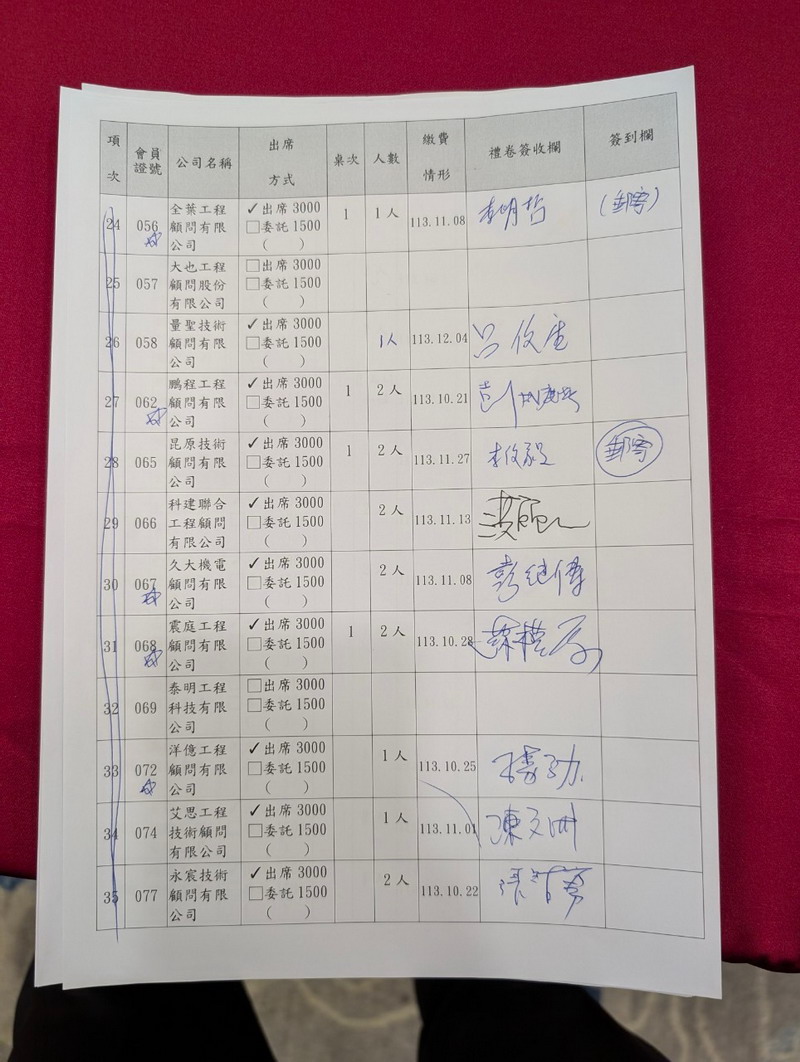 項次 會員證號 公司名稱 出席方式 桌次 人數 繳費情形 禮卷簽收欄 簽到欄
24 056 全葉工程 ✓出席 3000 1 1人 113.11.08 李明哲 (郵寄)
顧問有限 □委託 1500
公司 ( )
25 057 大也工程 □出席 3000
顧問股份 □委託 1500
有限公司 ( )
26 058 量聖技術 ✓出席 3000 1人 113.12.04
顧問有限 □委託 1500
公司 ( )
27 062 鵬程工程 ✓出席 3000 1 2人 113.10.21
顧問有限 □委託 1500
公司 ( )
28 065 昆原技術 ✓出席 3000 1 2人 113.11.27 郵寄
顧問有限 □委託 1500
公司 ( )
29 066 科建聯合 ✓出席 3000 2人 113.11.13
工程顧問 □委託 1500
有限公司 ( )
30 067 久大機電 ✓出席 3000 2人 113.11.08
顧問有限 □委託 1500
公司 ( )
31 068 震庭工程 ✓出席 3000 1 2人 113.10.28
顧問有限 □委託 1500
公司 ( )
32 069 泰明工程 □出席 3000
科技有限 □委託 1500
公司 ( )
33 072 洋億工程 ✓出席 3000 1人 113.10.25
顧問有限 □委託 1500
公司 ( )
34 074 艾思工程 ✓出席 3000 1人 113.11.01 陳文洲
技術顧問 □委託 1500
有限公司 ( )
35 077 永宸技術 ✓出席 3000 2人 113.10.22
顧問有限 □委託 1500
公司 ( )